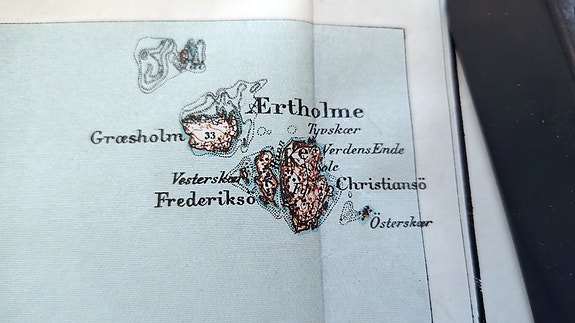 Ærtholme
Græsholm
33
Tyvskær
Ke
VerdensEnde
Skole
Vesterskær
Christiansö
Frederiksö
Österskær